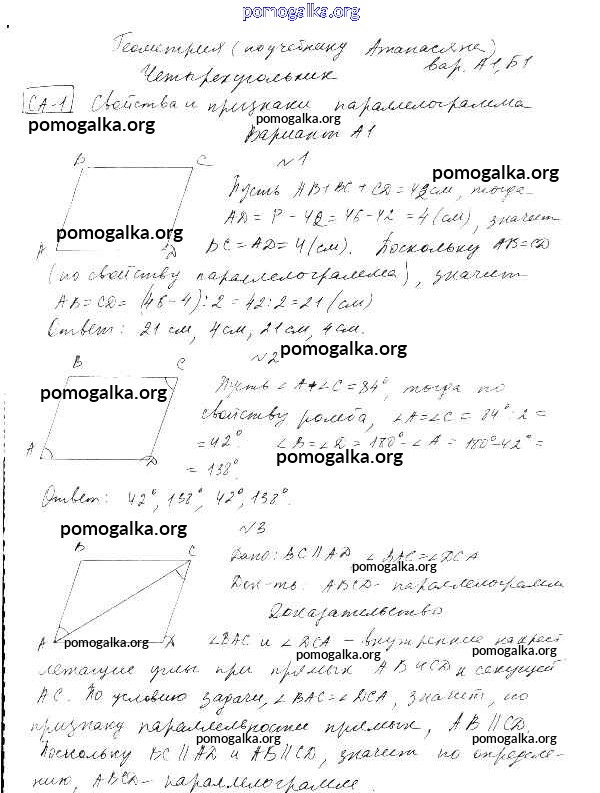 pomogalka.org
Геометрия (по учебнику Атанасяна)
Четырехугольник вар. А1, Б1
СА-1 Свойства и признаки параллелограмма
pomogalka.org
Вариант А1
B C №1
pomogalka.org
Пусть AB+BC+CD=42см, тогда
AD = P - 42 = 46-42 = 4 (см), значит
pomogalka.org
A D BC=AD=4(см). Поскольку AB=CD
(по свойству параллелограмма), значит
AB=CD= (46-4):2=42:2=21 (см)
Ответ: 21 см, 4см, 21 см, 4 см.
B C №2 pomogalka.org
pomogalka.org
Пусть ∠A+∠C=84°, тогда по
свойству ромба, ∠A=∠C = 84°:2 =
A D =42°. ∠B=∠D=180°-∠A=180°-42°=
pomogalka.org
= 138°
Ответ: 42°, 138°, 42°, 138°.
pomogalka.org №3
B C Дано: BC∥AD ∠BAC=∠DCA
pomogalka.org
Док-ть: ABCD- параллелограмм
Доказательство
A D pomogalka.org ∠BAC и ∠DCA - внутренние накрест
pomogalka.org pomogalka.org
лежащие углы при прямых AB и CD и секущей
AC. По условию задачи, ∠BAC=∠DCA, значит, по
признаку параллельности прямых, AB∥CD.
pomogalka.org pomogalka.org
Поскольку BC∥AD и AB∥CD, значит по определе-
нию, ABCD- параллелограмм.